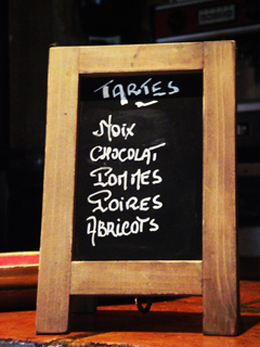 TARTES
NOIX
CHOCOLAT
POMMES
POIRES
ABRICOTS